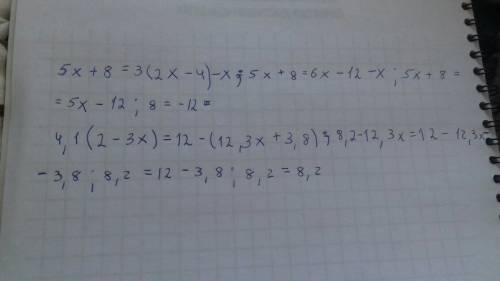 5x + 8 = 3(2x - 4) - x; 5x + 8 = 6x - 12 - x; 5x + 8 =
= 5x - 12; 8 = -12 =
4,1(2 - 3x) = 12 - (12,3x + 3,8); 8,2 - 12,3x = 12 - 12,3x -
- 3,8; 8,2 = 12 - 3,8; 8,2 = 8,2